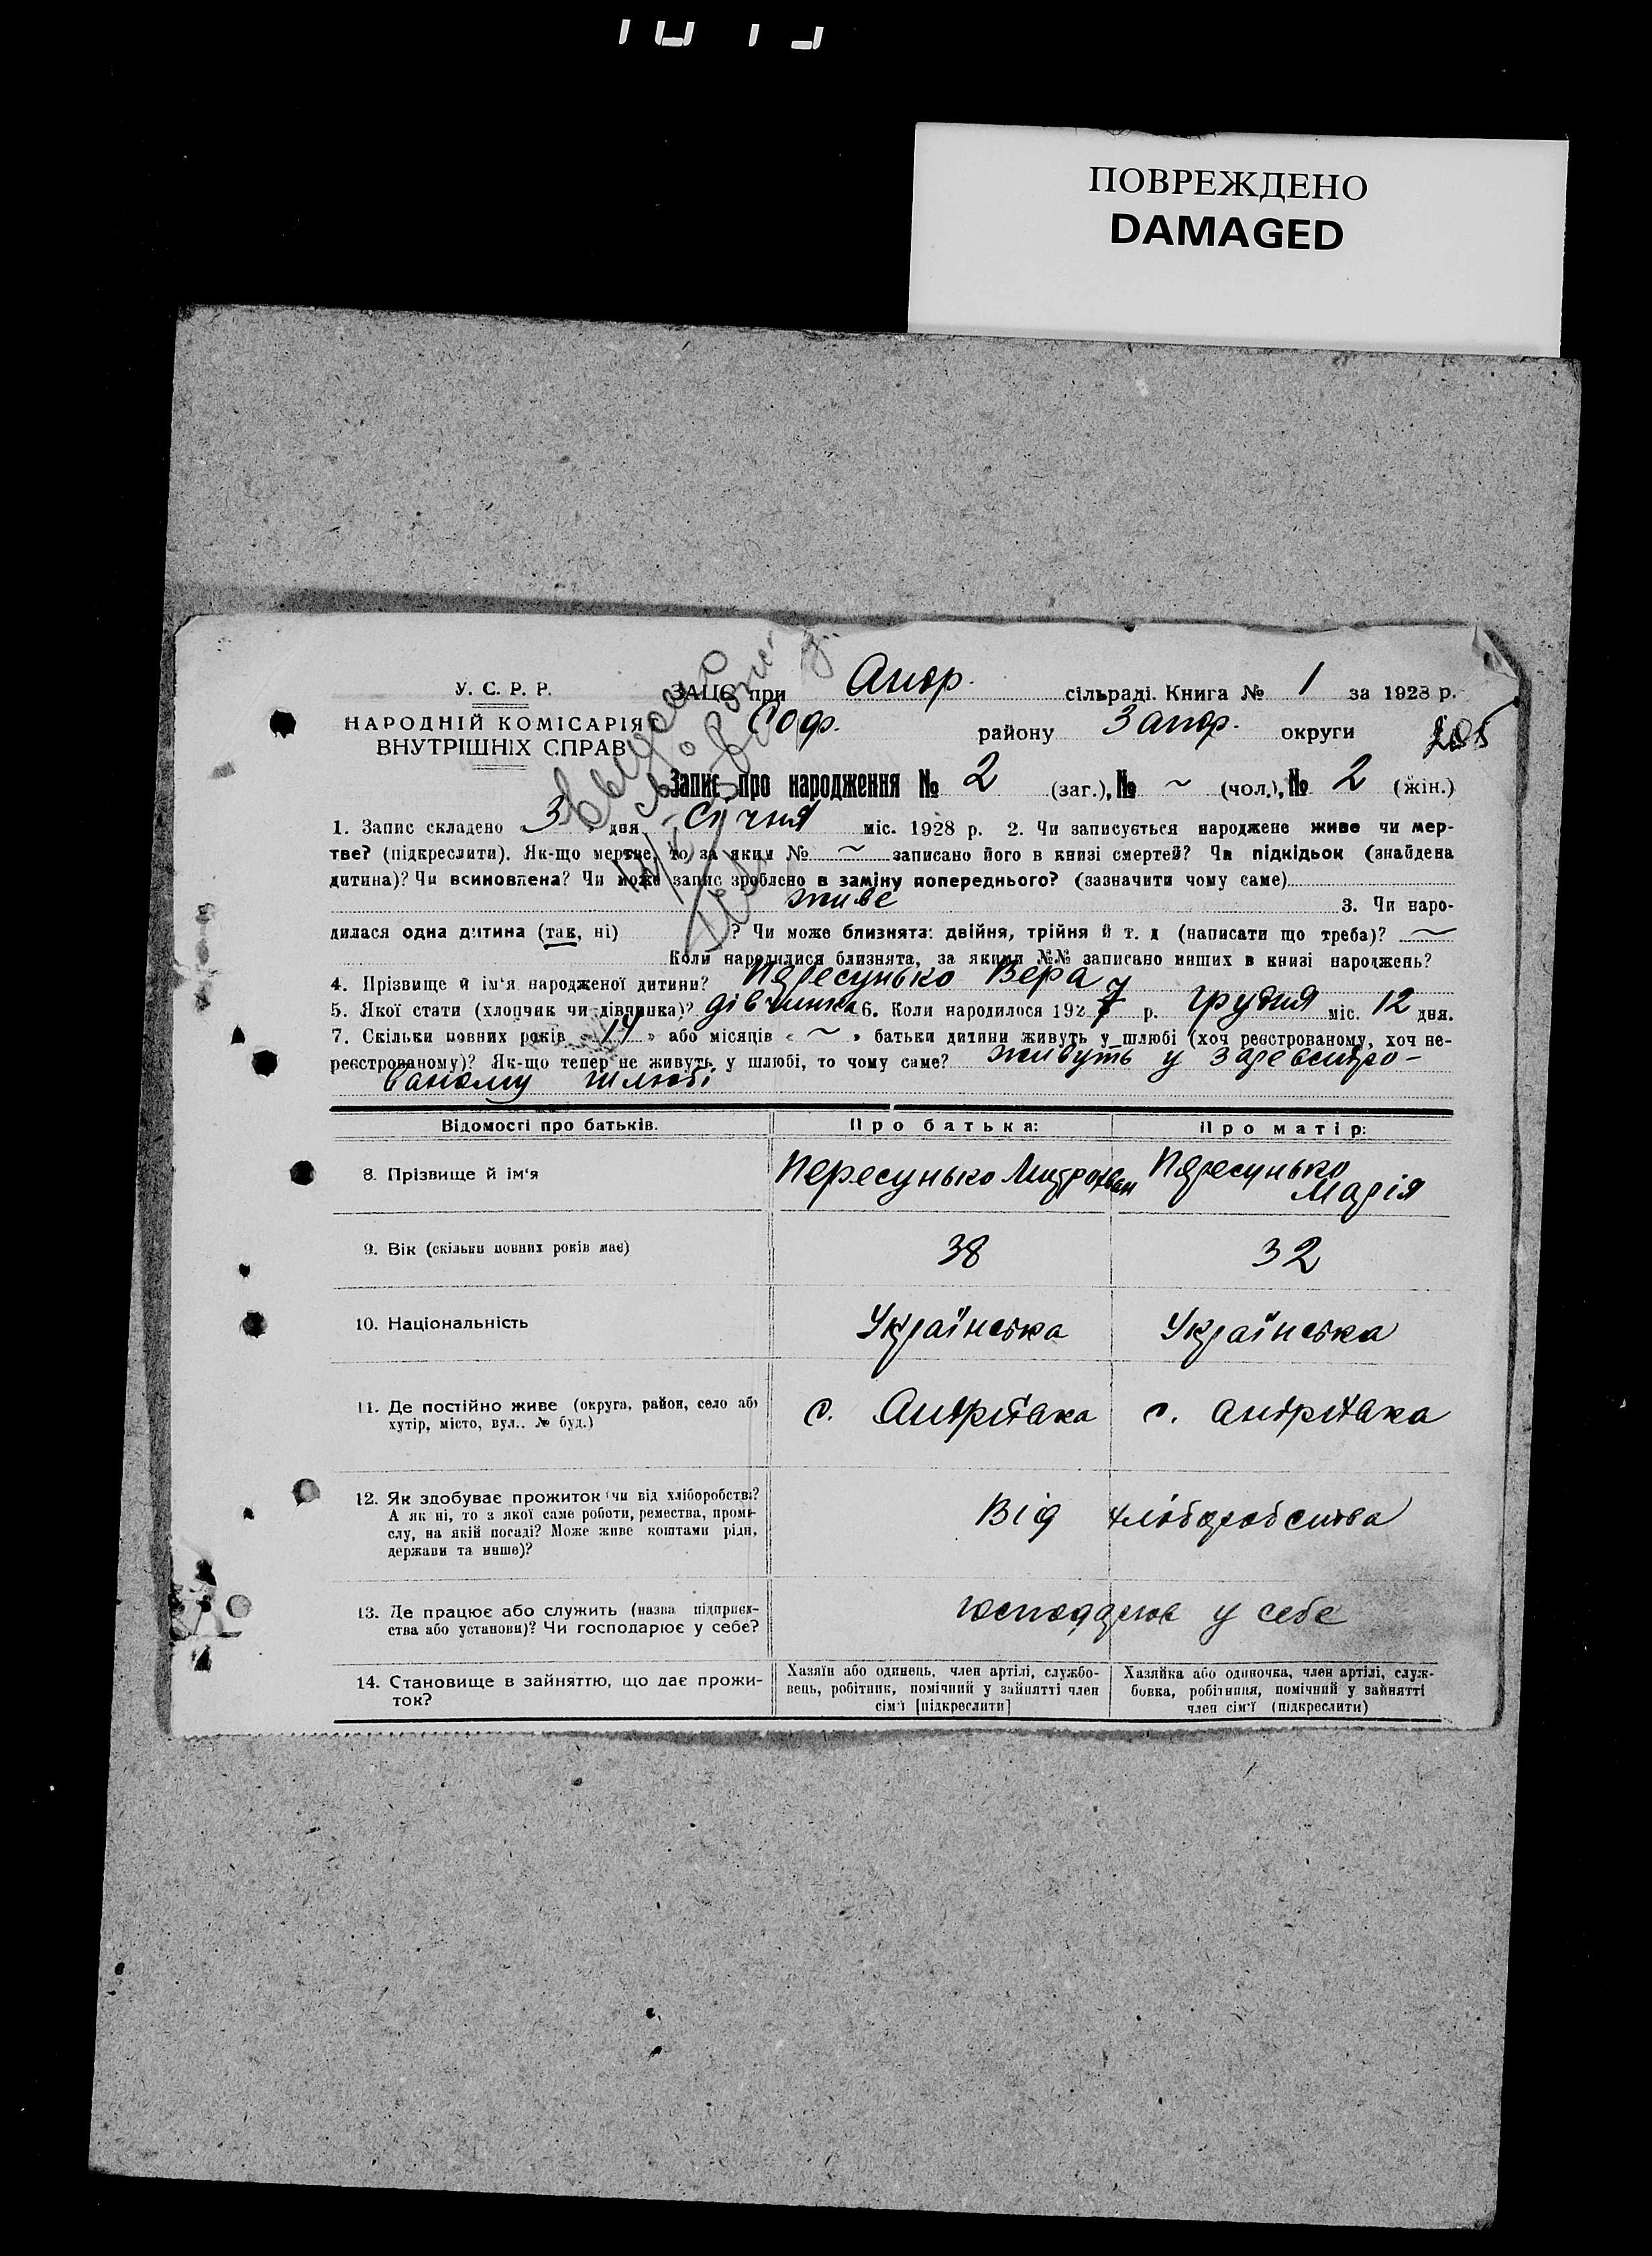 ПОВРЕЖДЕНО
DAMAGED
У. С. Р. Р.
НАРОДНІЙ КОМІСАРІЯТ
ВНУТРІШНІХ СПРАВ
ЗАЦС при Андр. сільраді. Книга № 1 за 1928 р.
Соф. району Запор. округи
Запис про народження № 2 (заг.), № ~ (чол.), № 2 (жін.)
1. Запис складено « 3 » дня Січня міс. 1928 р. 2. Чи записується народжене живе чи мер-
тве? (підкреслити). Як-що мертве, то за яким № ~ записано його в книзі смертей? Чи підкідьок (знайдена
дитина)? Чи всиновлена? Чи може запис зроблено в заміну попереднього? (зазначити чому саме)
живе 3. Чи наро-
дилася одна дитина (так, ні) ? Чи може близнята: двійня, трійня й т. д (написати що треба)? ~
Коли народилися близнята, за якими №№ записано инших в книзі народжень?
4. Прізвище й ім'я народженої дитини? Пересунько Вера
5. Якої стати (хлопчик чи дівчинка)? дівчинка 6. Коли народилося 1927 р. Грудня міс. 12 дня.
7. Скільки повних років « 14 » або місяців « ~ » батьки дитини живуть у шлюбі (хоч реєстрованому, хоч не-
реєстрованому)? Як-що тепер не живуть у шлюбі, то чому саме? живуть у зареєстро-
ваному шлюбі
Відомості про батьків. Про батька: Про матір:
8. Прізвище й ім'я Пересунько Митрофан Пересунько
Марія
9. Вік (скільки повних років має) 38 32
10. Національність Українська Українська
11. Де постійно живе (округа, район, село або
хутір, місто, вул.. № буд.) с. Андріївка с. Андріївка
12. Як здобуває прожиток (чи від хліборобства?
А як ні, то з якої саме роботи, ремества, проми-
слу, на якій посаді? Може живе коштами рідні,
держави та инше)? Від хліборобства
13. Де працює або служить (назва підприєм-
ства або установи)? Чи господарює у себе? господарює у себе
14. Становище в зайняттю, що дає прожи-
ток?
Хазяїн або одинець, член артілі, службо-
вець, робітник, помічний у зайнятті член
сім'ї [підкреслити]
Хазяйка або одиночка, член артілі, служ-
бовка, робітниця, помічний у зайнятті
член сім'ї (підкреслити)